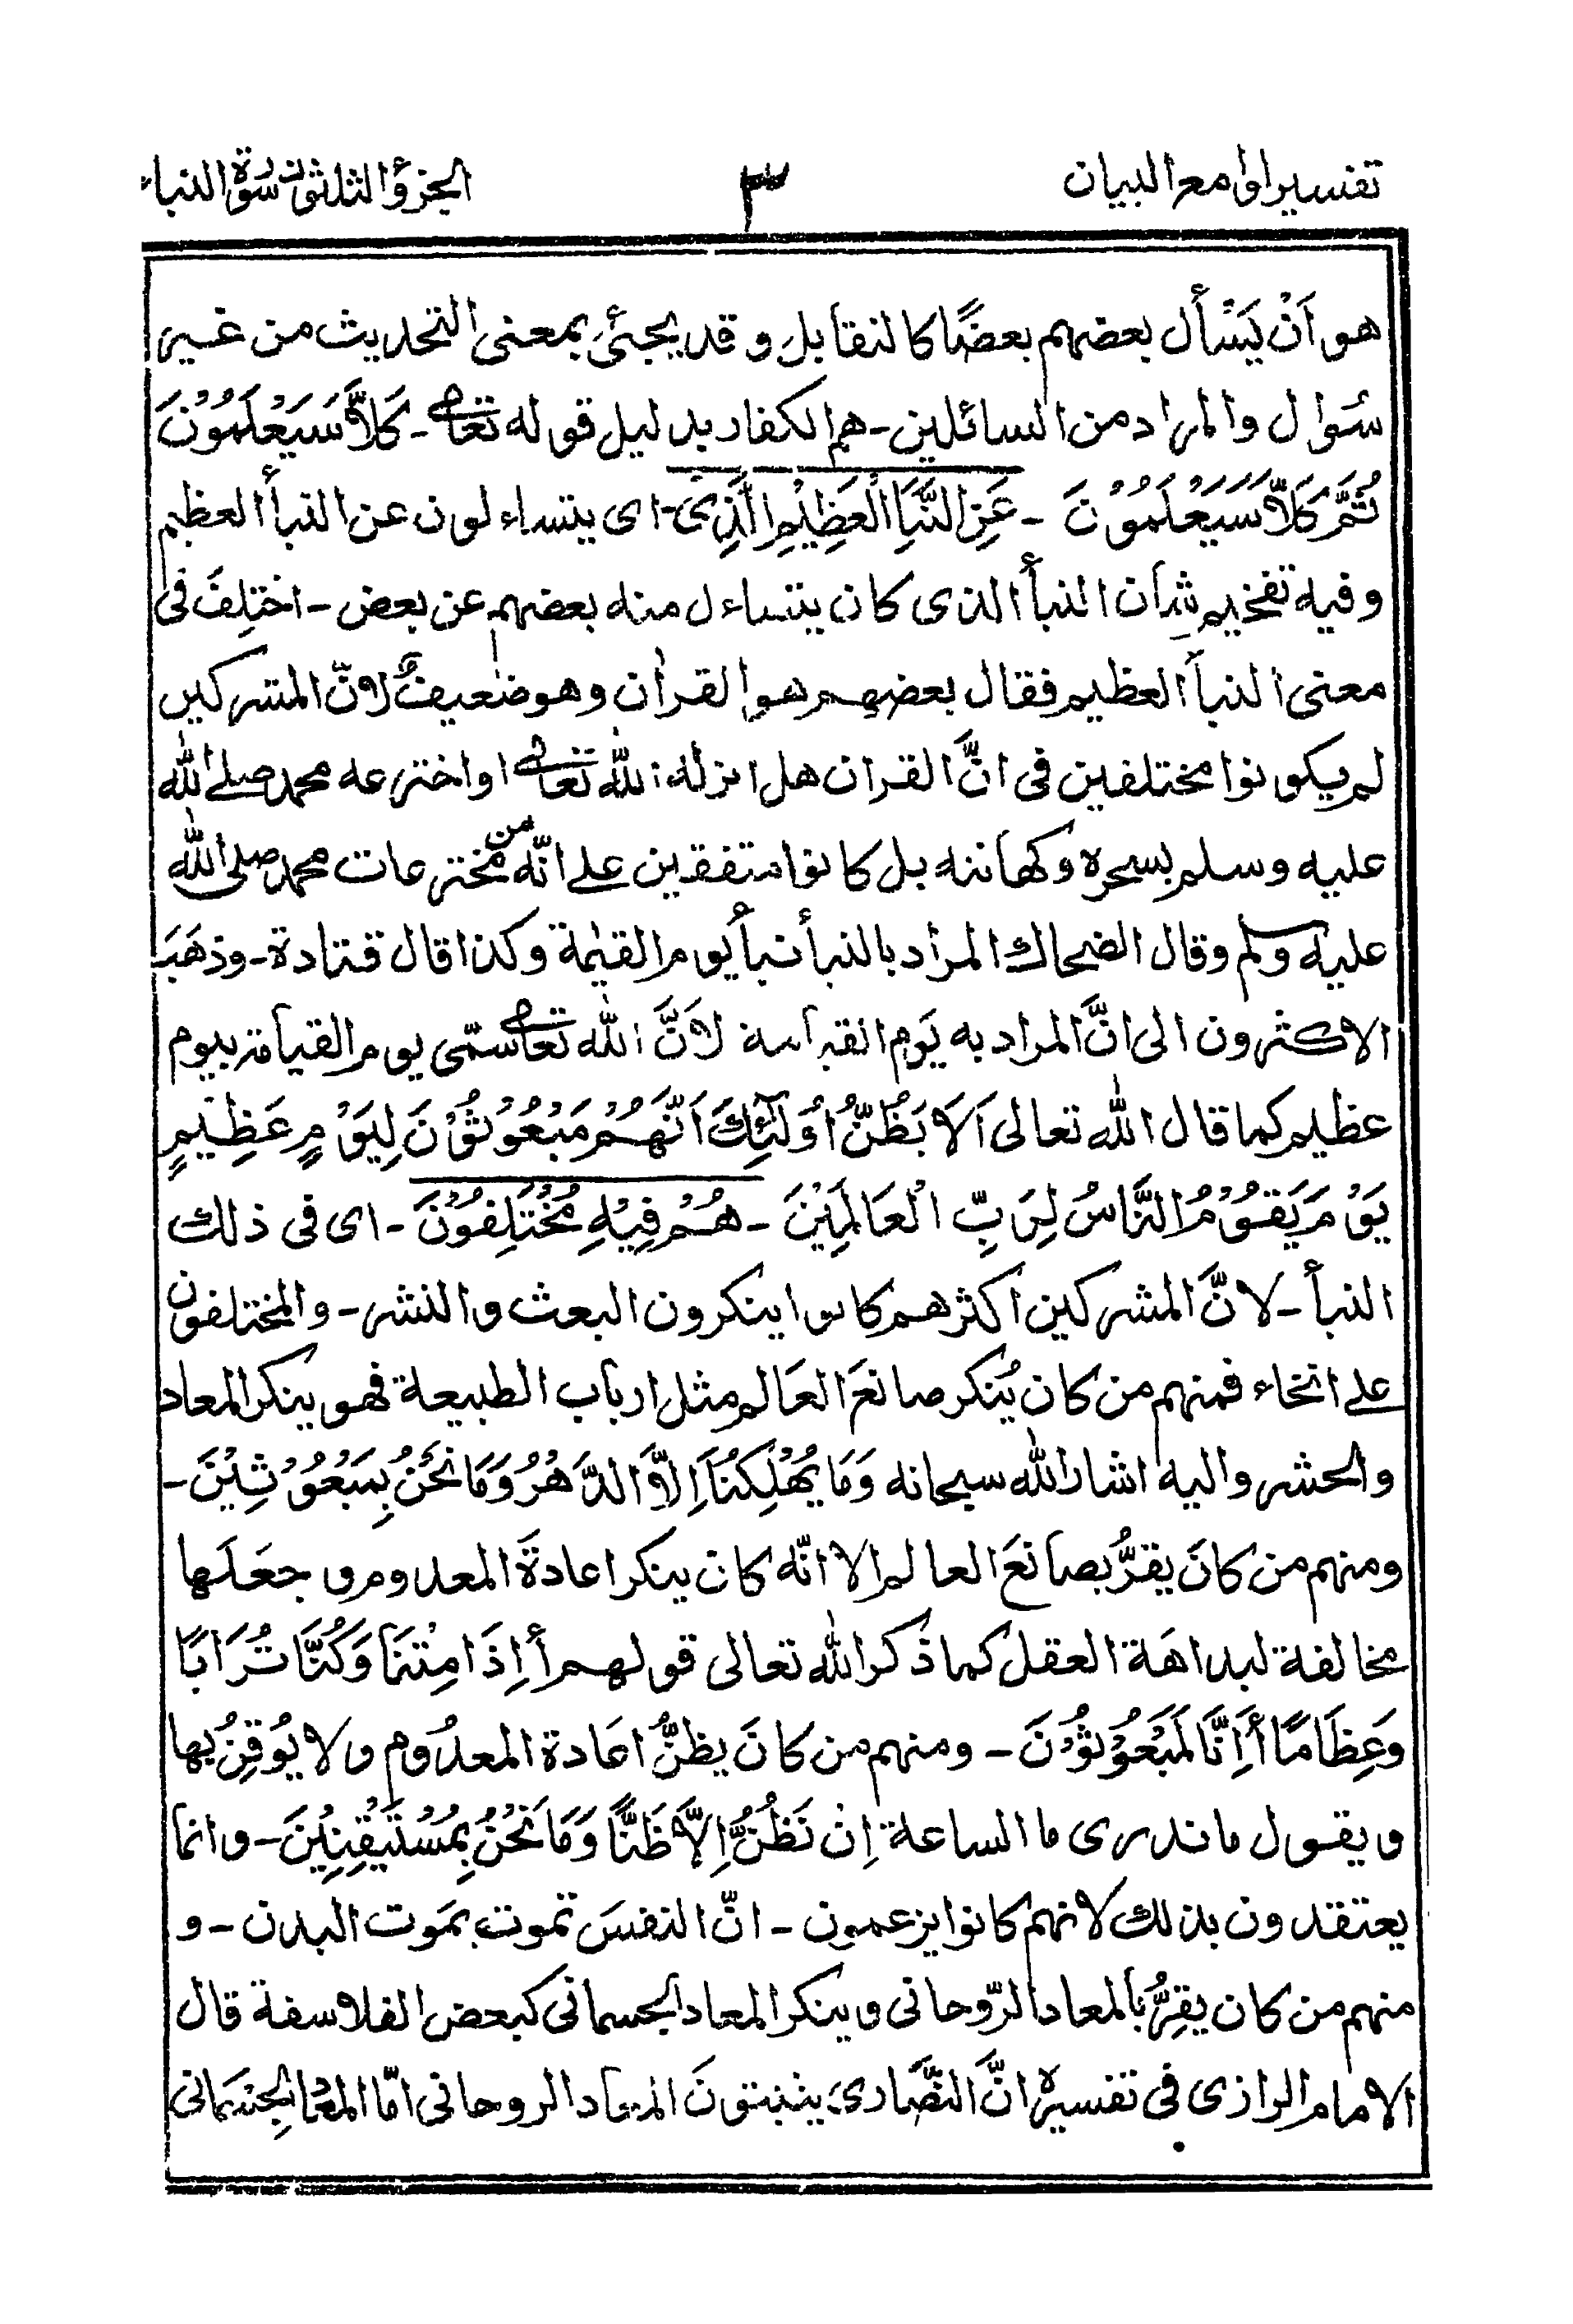 تفسير لوامع البيان ٣ الجزؤ الثلثون سورة النباء
هو اَنْ يَسْأل بعضهم بعضًا كالتقابل وقد يجئ بمعنى التحديث من غير
سُوال والمراد من السائلين - هم الكفار بدليل قوله تعالى - كَلَّا سَيَعْلَمُوْنَ
ثُمَّ كَلَّا سَيَعْلَمُوْنَ - عَنِ النَّبَاِ الْعَظِيْمِ الَّذِىْ - اى يتساءلون عن النبأ العظيم
وفيه تفخيم شان النبأ الذى كان يتساءل منه بعضهم عن بعض - اختلِفَ فى
معنى النبأ العظيم فقال بعضهم هوالقرآن وهو ضعيفٌ لانّ المشركين
لم يكونوا مختلفين فى انَّ القران هل انزله الله تعالى او اخترعه محمد صلے الله
عليه وسلم بسحره وكهانته بل كانوا متفقين علے انّه من مخترعات محمد صلى الله
عليه وسلم وقال الضحاك المراد بالنبأ نبأ يوم القيٰمة وكذا قال قتادة - وذهَبَ
الاكثرون الى انَّ المراد به يَوم القيامة لانَّ الله تعالى سمّى يوم القيامة بيوم
عظيم كما قال الله تعالى اَلَا يَظُنُّ اُولٰٓئِكَ اَنَّهُمْ مَبْعُوْثُوْنَ لِيَوْمٍ عَظِيْمٍ
يَوْمَ يَقُوْمُ النَّاسُ لِرَبِّ الْعَالَمِيْنَ - هُمْ فِيْهِ مُخْتَلِفُوْنَ - اى فى ذلك
النبأ - لانّ المشركين اكثرهم كانوا ينكرون البعث والنشر - والمختلفون
علے انحاء فمنهم من كان يُنكر صانعَ العَالم مثل ارباب الطبيعة فهو ينكر المعاد
والحشر واليه اشار الله سبحانه وَمَا يُهْلِكُنَا اِلَّا الدَّهْرُ وَمَا نَحْنُ بِمَبْعُوْثِيْنَ -
ومنهم من كانَ يقرُّ بصانعَ العالم الا انّه كان ينكر اعادةَ المعدوم و جعَلَها
مخالفة لبداهَة العقل كما ذكر الله تعالى قولهم أ اِذَا مِتْنَا وَكُنَّا تُرَابًا
وَعِظَامًا أَاِنَّا لَمَبْعُوْثُوْنَ - ومنهم من كانَ يظنُّ اعادة المعدُوم ولا يُوقِنُ بها
ويقول ما ندرى ما الساعة اِنْ نَظُنُّ اِلَّا ظَنًّا وَمَا نَحْنُ بِمُسْتَيْقِنِيْنَ - وانما
يعتقدون بذلك لانهم كانوا يزعمون - انّ النفسَ تموت بمَوت البدن - و
منهم من كان يقِرُّ بالمعاد الرّوحانى وينكر المعاد الجسمانى كبعض الفلاسفة قال
الامام الرازى فى تفسيره انَّ النَّصَارىٰ يثبتونَ المعاد الروحانى امّا المعاد الجسَمانى